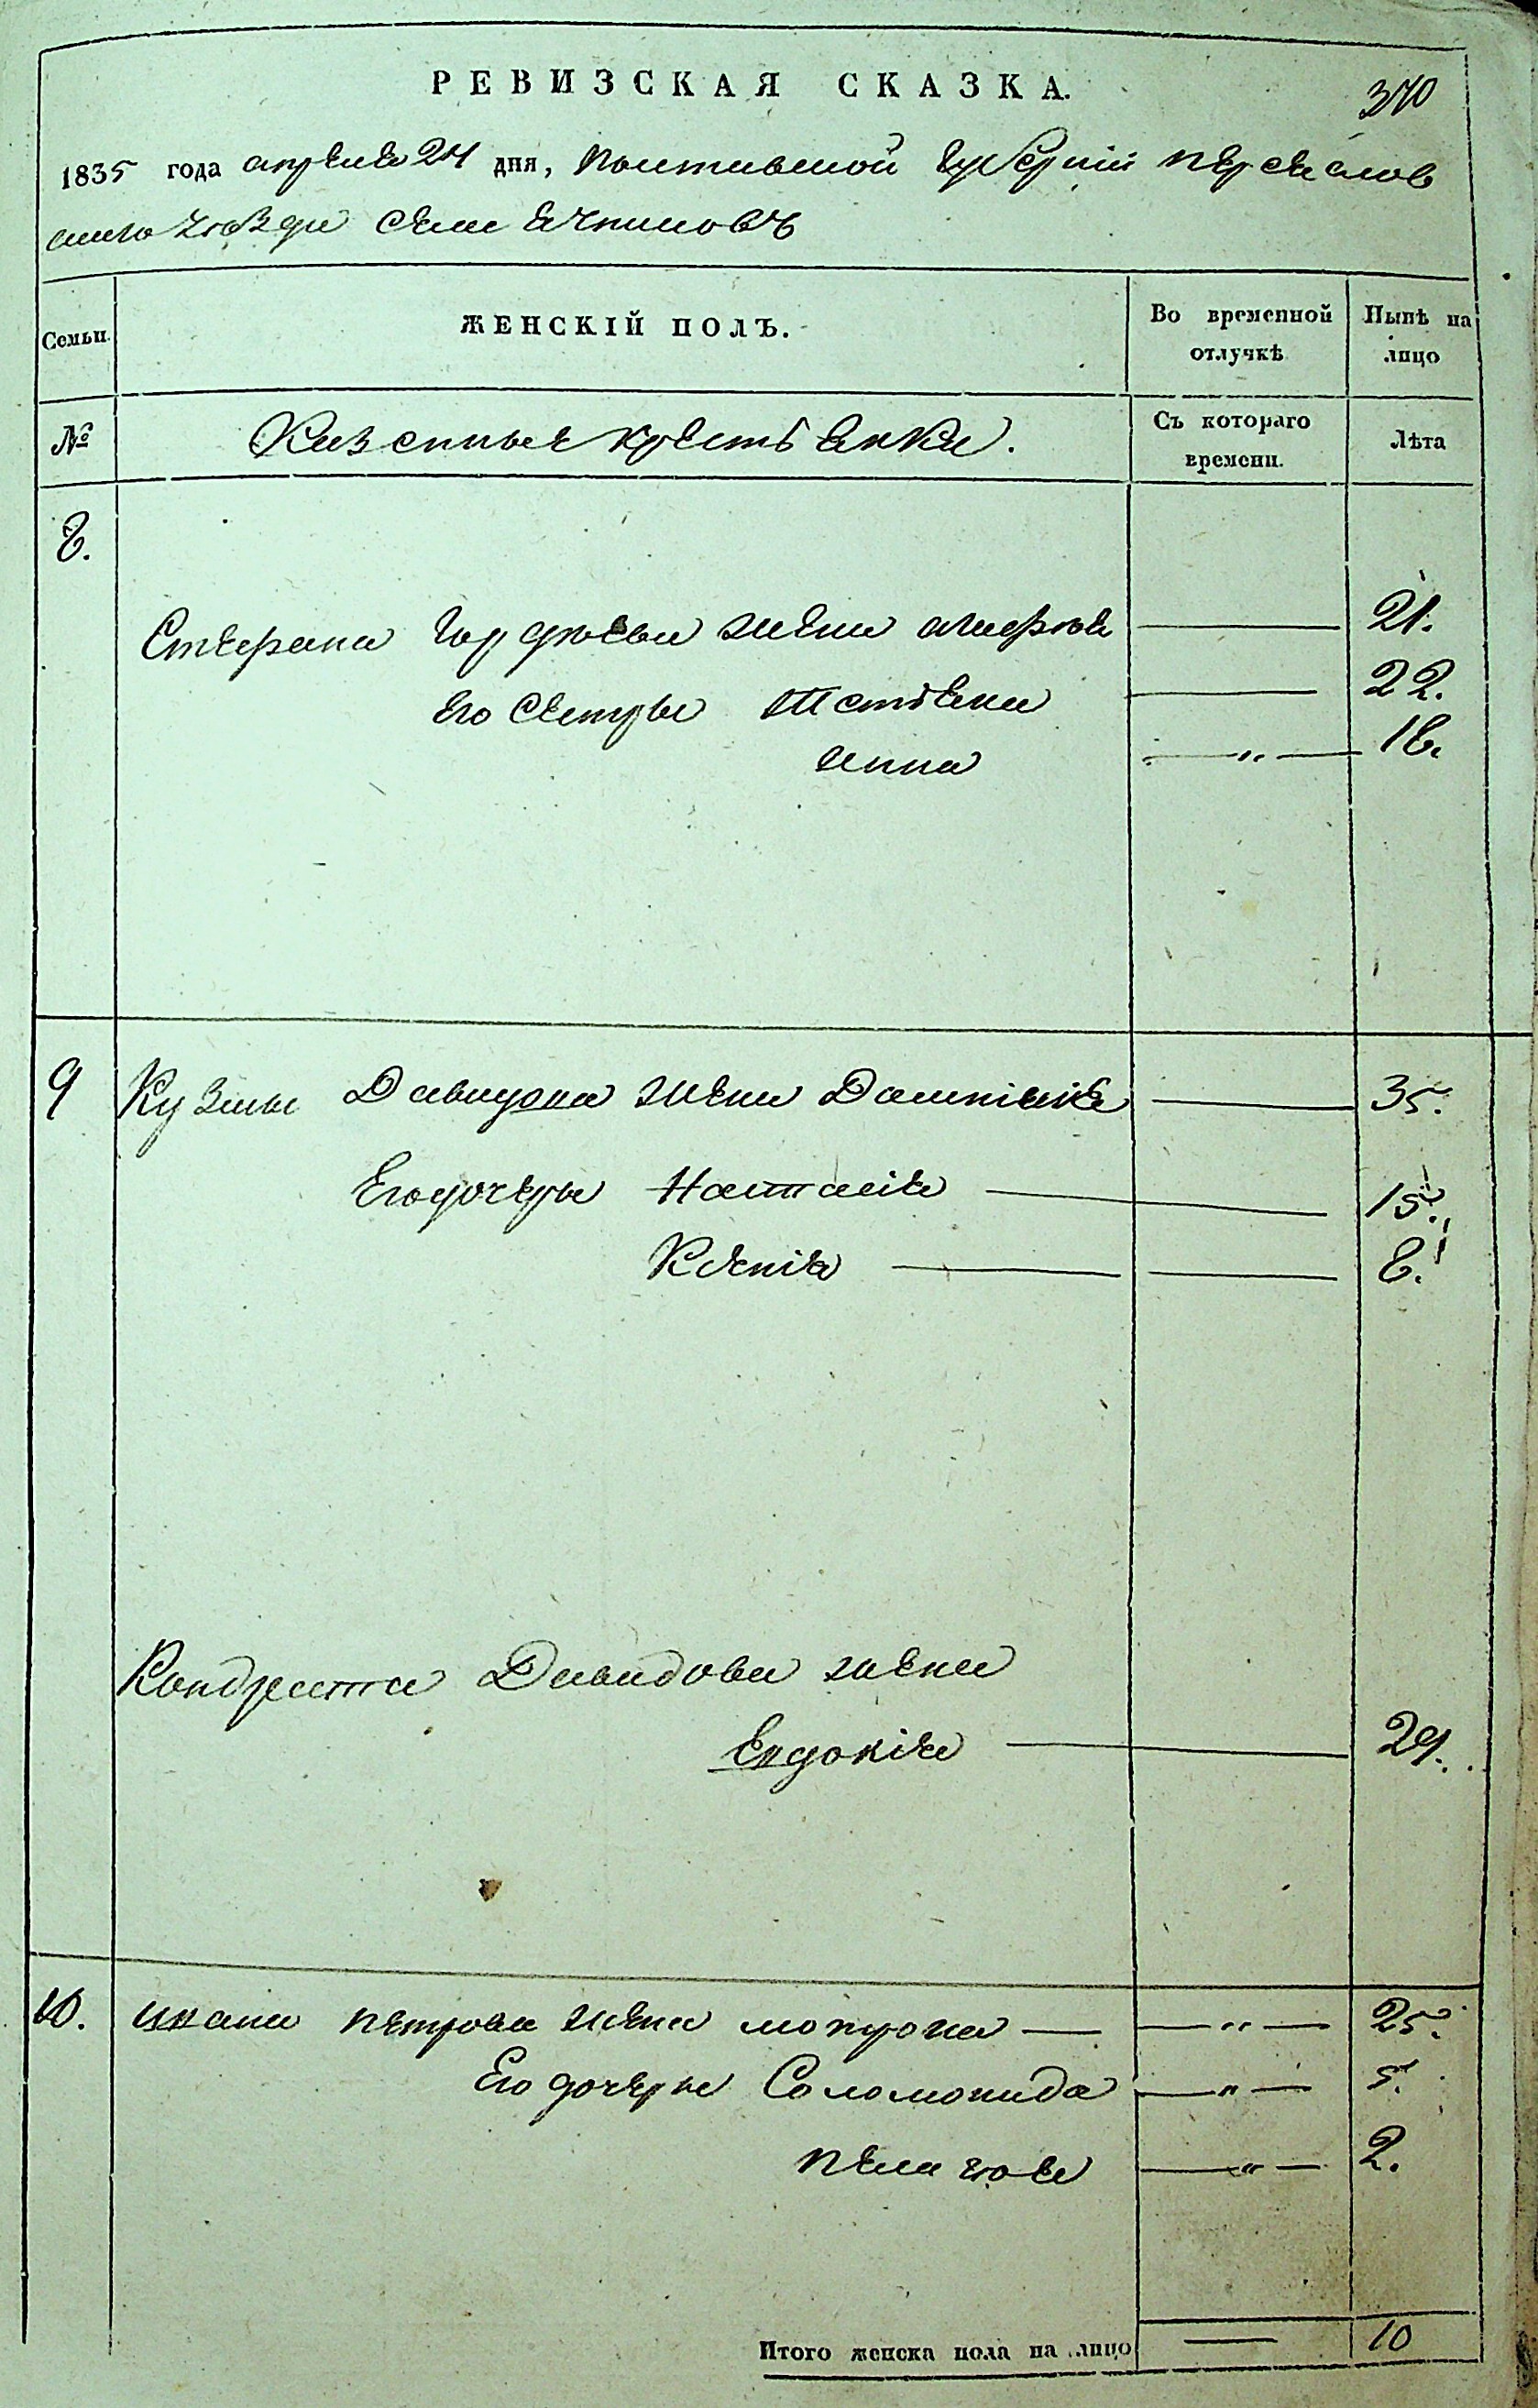 РЕВИЗСКАЯ СКАЗКА.
370
1835 года апреля 24 дня, Полтавской губерніи переяслов
ского уѣзда села
Семьи.
ЖЕНСКІЙ ПОЛЪ.
Во временной отлучкѣ
Нынѣ на лицо
№
Казенные крестьянки.
Съ котораго времени.
Лѣта
8.
Степана Гордѣева жена марфа — 21.
Его сестры Татьяна — 22.
анна — „ — 18.
9 Кузмы Давидова жена Домникія — 35.
Его дочеры Настасія — 15.
Ксенія — — 8.
Кондрата Давидова жена
Евдокія — 29.
10. ивана петрова жена мотрона — — „ — 25.
Его дочеры Соломонида — „ — 5.
пелагея — „ — 2.
Итого женска пола на лицо — 10